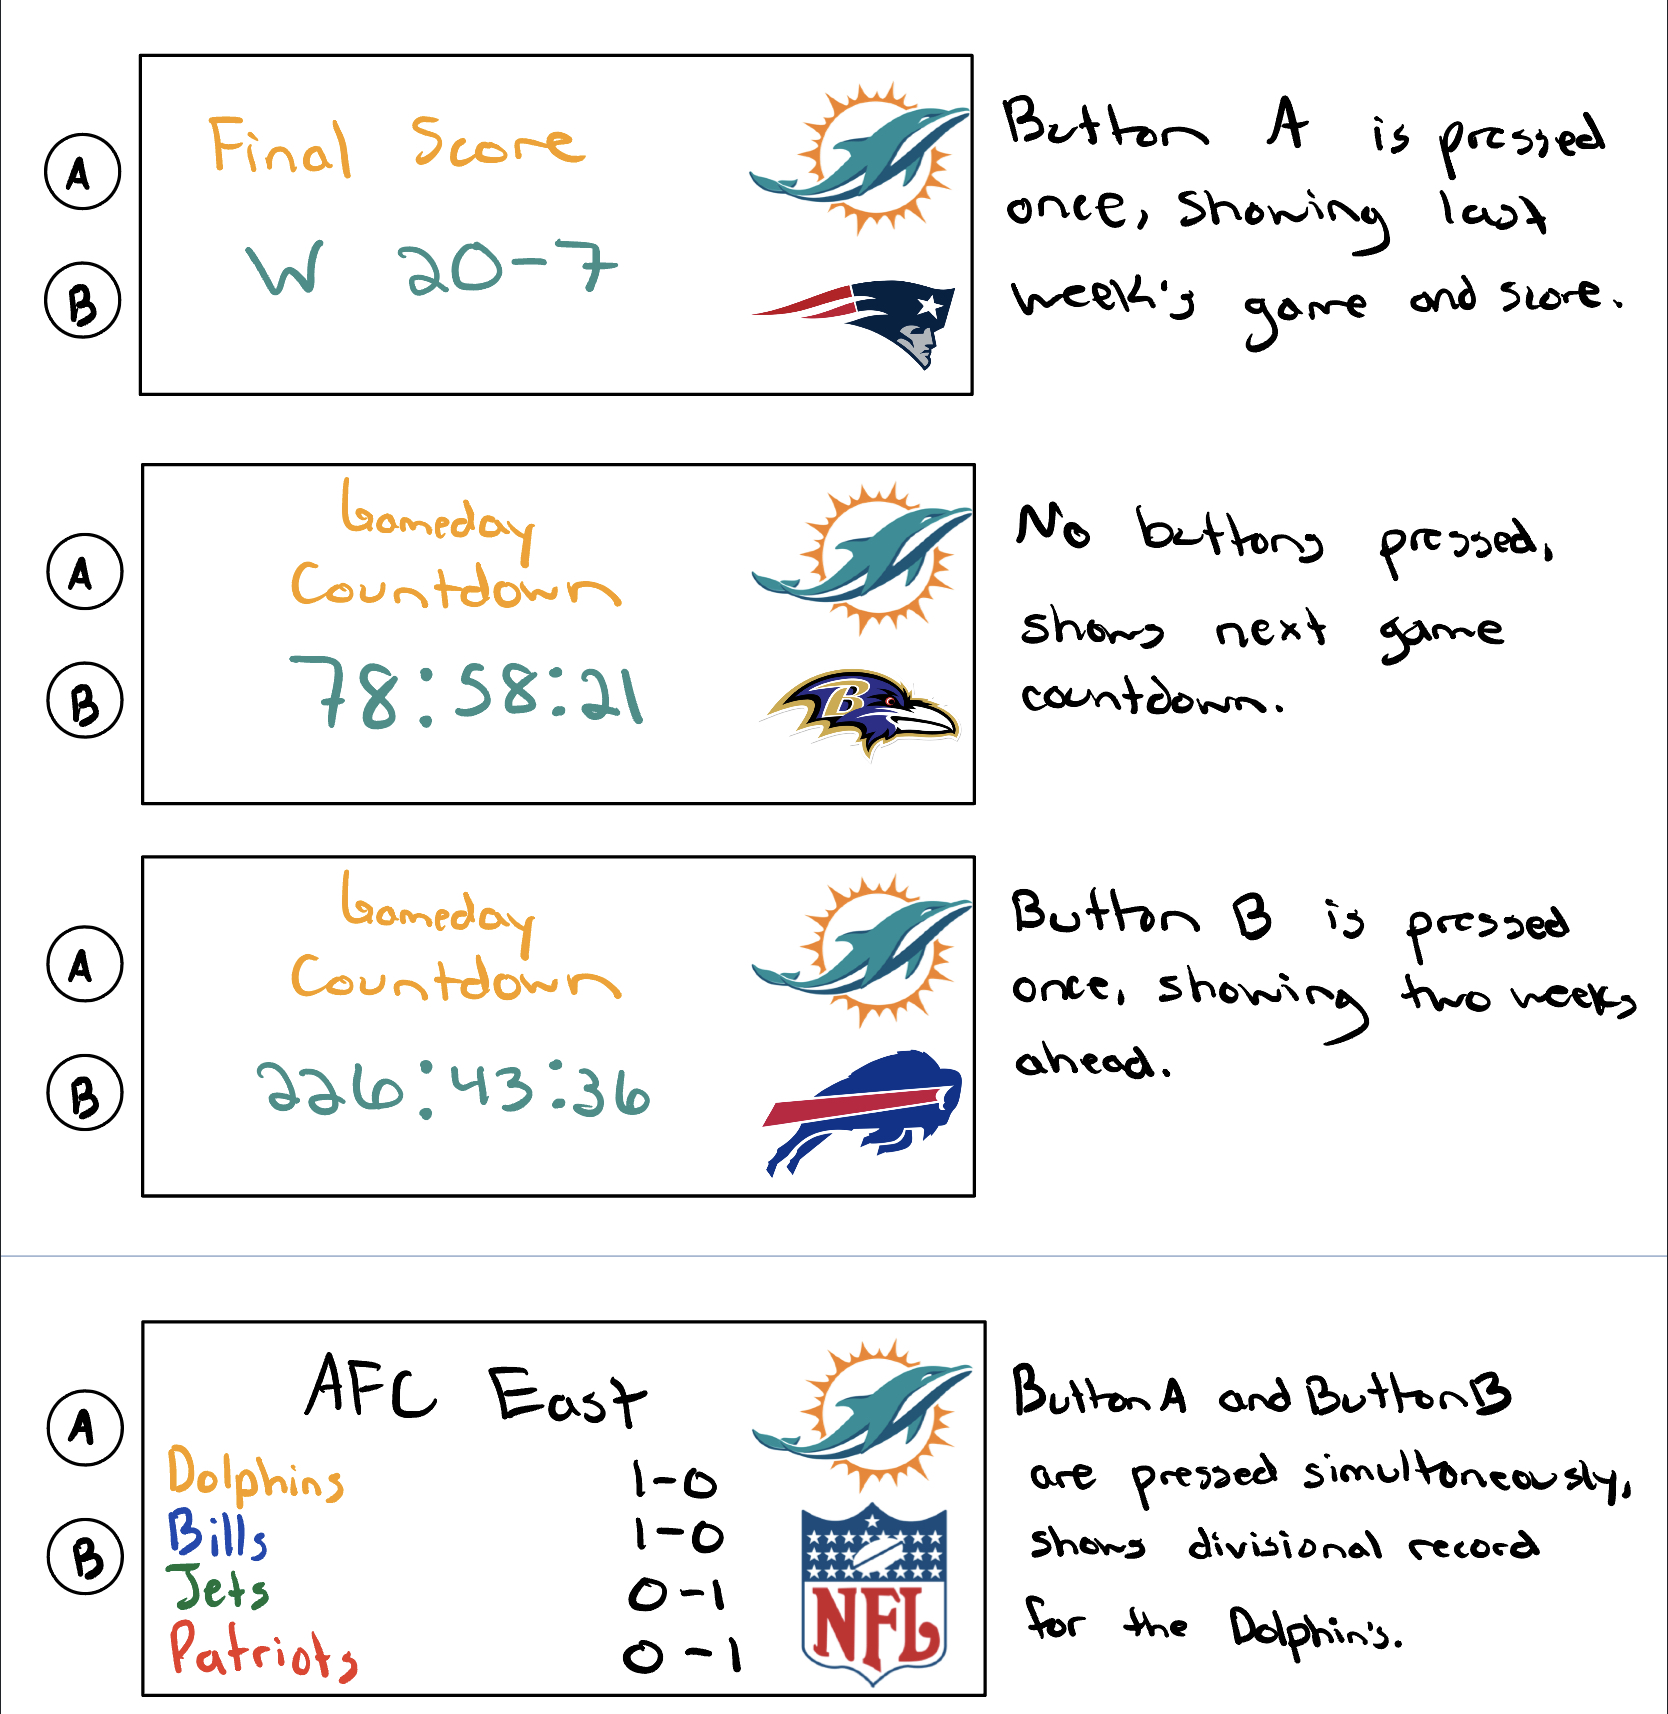 A
B
Final Score
W 20-7
Button A is pressed
once, showing last
week's game and score.
A
B
Gameday
Countdown
78:58:21
B
No buttons pressed,
shows next game
countdown.
A
B
Gameday
Countdown
226:43:36
Button B is pressed
once, showing two weeks
ahead.
A
B
AFC East
Dolphins 1-0
Bills 1-0
Jets 0-1
Patriots 0-1
NFL
Button A and Button B
are pressed simultaneously,
shows divisional record
for the Dolphin's.